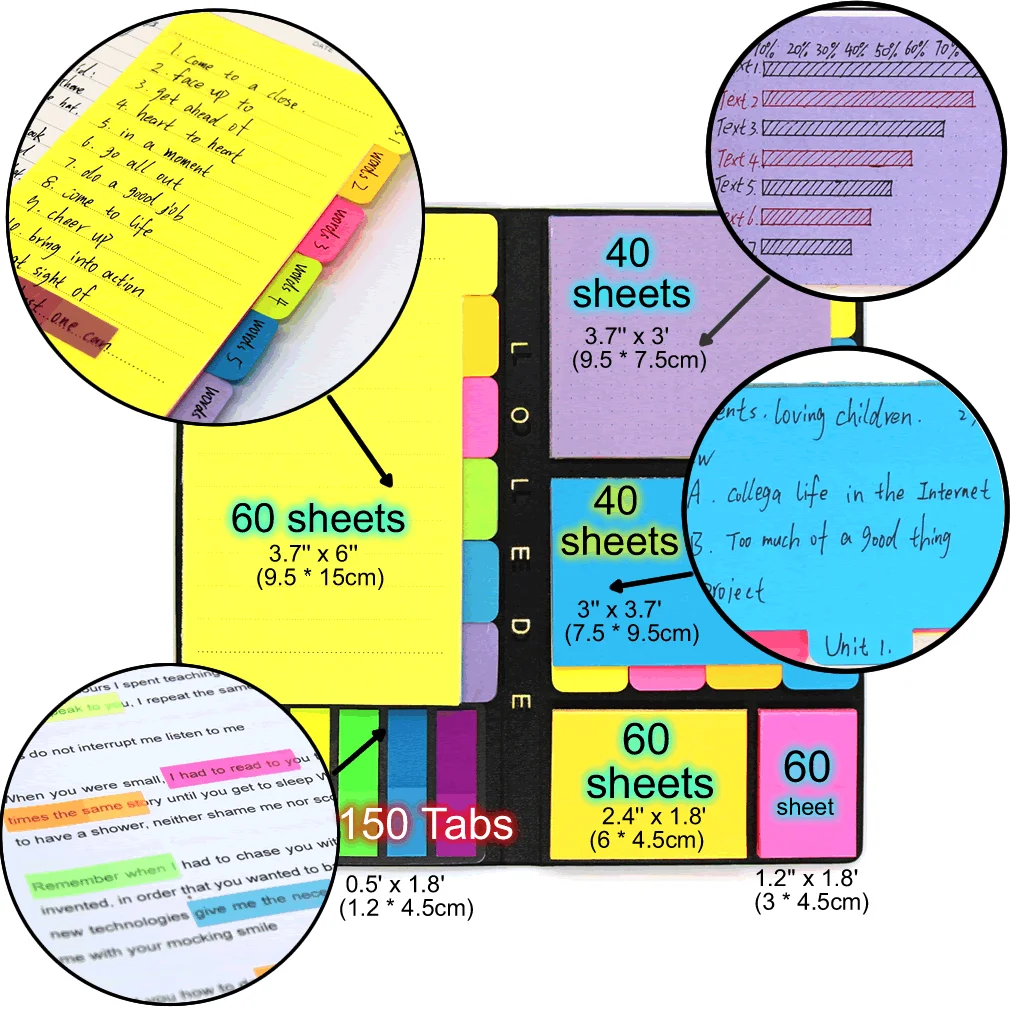 DATE
1. come to a close.
2. face up to
3. get ahead of
4. heart to heart
5. in a moment
6. go all out
7. do a good job
8. come to life
9. cheer up
10. bring into action
sight of
one can
words 2
words 3
words 4
words 5
words
10% 20% 30% 40% 50% 60% 70%
Text 2
Text 3.
Text 4.
Text 5
40
sheets
3.7" x 3'
(9.5 * 7.5cm)
LOLLEDE
60 sheets
3.7" x 6"
(9.5 * 15cm)
40
sheets
3" x 3.7'
(7.5 * 9.5cm)
loving children. 2,
A. collega life in the Internet
B. Too much of a good thing
roject
Unit 1.
ours I spent teaching
eak to you, I repeat the same
do not interrupt me listen to me
When you were small, I had to read to you
times the same story until you get to sleep
to have a shower, neither shame me nor
Remember when I had to chase you
invented, in order that you wanted to
new technologies give me the nece
me with your mocking smile
you how to
150 Tabs
0.5' x 1.8'
(1.2 * 4.5cm)
60
sheets
2.4" x 1.8'
(6 * 4.5cm)
60
sheet
1.2" x 1.8'
(3 * 4.5cm)